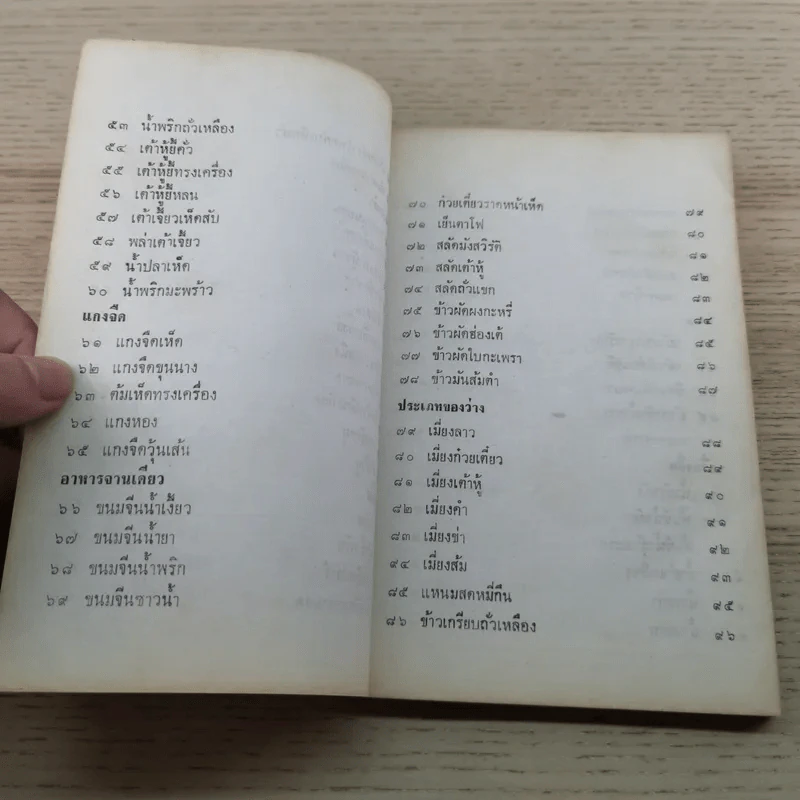 ๕๓ น้ำพริกถั่วเหลือง
๕๔ เต้าหู้ยี้คั่ว
๕๕ เต้าหู้ยี้ทรงเครื่อง
๕๖ เต้าหู้ยี้หลน
๕๗ เต้าเจี้ยวเห็ดสับ
๕๘ พล่าเต้าเจี้ยว
๕๙ น้ำปลาเห็ด
๖๐ น้ำพริกมะพร้าว
แกงจืด
๖๑ แกงจืดเห็ด
๖๒ แกงจืดขุนนาง
๖๓ ต้มเห็ดทรงเครื่อง
๖๔ แกงหอง
๖๕ แกงจืดวุ้นเส้น
อาหารจานเดียว
๖๖ ขนมจีนน้ำเงี้ยว
๖๗ ขนมจีนน้ำยา
๖๘ ขนมจีนน้ำพริก
๖๙ ขนมจีนซาวน้ำ
๗๐ ก๋วยเตี๋ยวราดหน้าเห็ด ๗๙
๗๑ เย็นตาโฟ ๘๐
๗๒ สลัดมังสวิรัติ ๘๑
๗๓ สลัดเต้าหู้ ๘๒
๗๔ สลัดถั่วแขก ๘๓
๗๕ ข้าวผัดผงกะหรี่ ๘๔
๗๖ ข้าวผัดฮ่องเต้ ๘๕
๗๗ ข้าวผัดใบกะเพรา ๘๖
๗๘ ข้าวมันส้มตำ ๘๗
ประเภทของว่าง
๗๙ เมี่ยงลาว ๘๘
๘๐ เมี่ยงก๋วยเตี๋ยว ๘๙
๘๑ เมี่ยงเต้าหู้ ๙๐
๘๒ เมี่ยงคำ ๙๑
๘๓ เมี่ยงข่า ๙๒
๙๔ เมี่ยงส้ม ๙๓
๘๕ แหนมสดหมี่กึน ๙๕
๘๖ ข้าวเกรียบถั่วเหลือง ๙๖